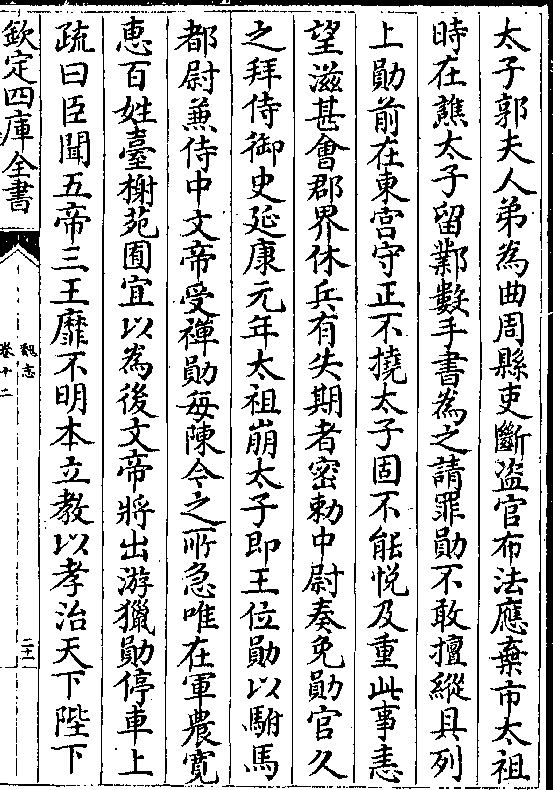 太子郭夫人弟為曲周縣吏斷盜官布法應棄市太祖
時在譙太子留鄴數手書為之請罪勛不敢擅縱具列
上勛前在東宮守正不撓太子固不能悅及重此事恚
望滋甚會郡界休兵有失期者密勅中尉奏免勛官久
之拜侍御史延康元年太祖崩太子即王位勛以駙馬
都尉兼侍中文帝受禪勛每陳今之所急唯在軍農寬
惠百姓臺榭苑囿宜以為後文帝將出游獵勛停車上
疏曰臣聞五帝三王靡不明本立教以孝治天下陛下
欽定四庫全書
魏志
卷十二
二十一